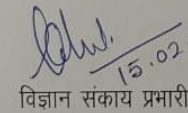 15.02
विज्ञान संकाय प्रभारी